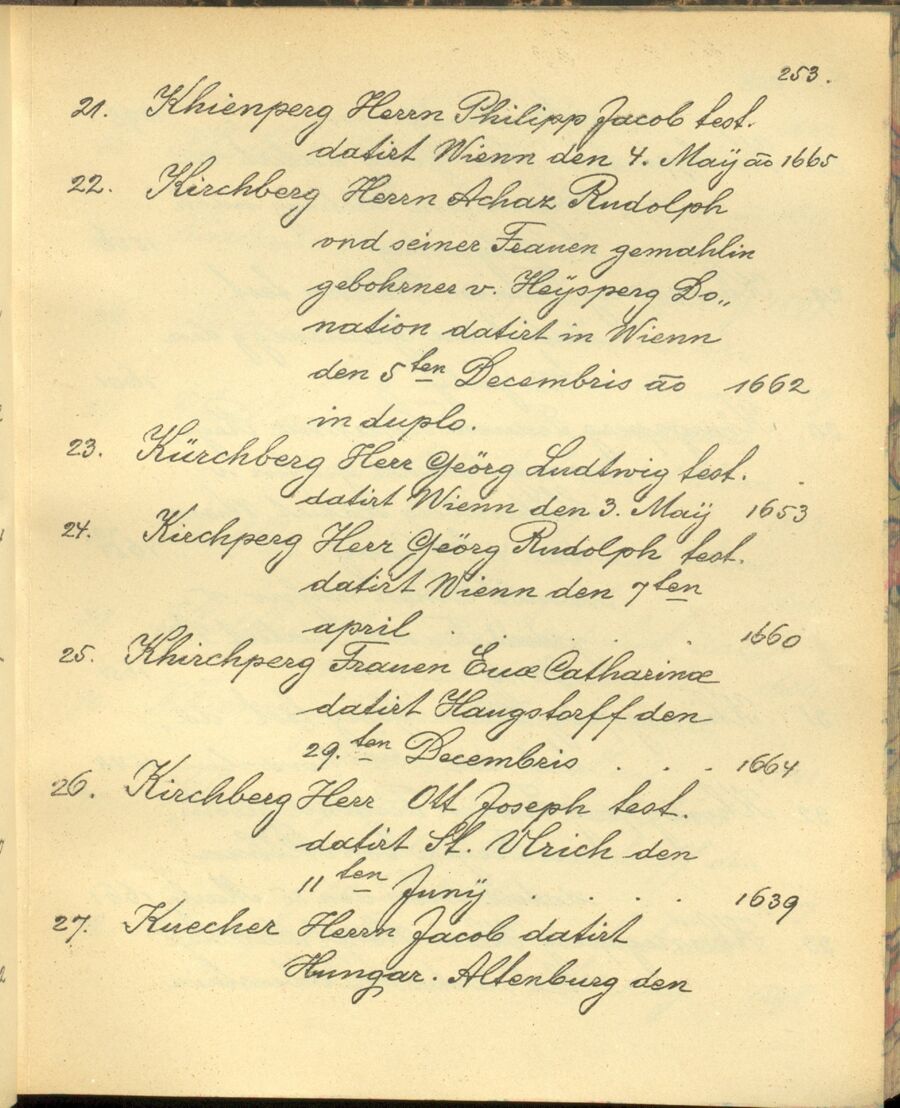 253.
21. Khienperg Herrn Philipp Jacob test.
datirt Wienn den 4. Maÿ ão 1665
22. Kirchberg Herrn Achaz Rudolph
vnd seiner Frauen gemahlin
gebohrner v. Heÿsperg Do„
nation datirt in Wienn
den 5ten Decembris ão 1662
in duplo.
23. Kürchberg Herr Geörg Ludtwig test.
datirt Wienn den 3. Maÿ 1653
24. Kirchperg Herr Geörg Rudolph test.
datirt Wienn den 7ten
april . . . . . 1660
25. Khirchperg Frauen Euæ Catharinæ
datirt Haugstorff den
29.ten Decembris . . . 1664
26. Kirchberg Herr Ott Joseph test.
datirt St. Vlrich den
11ten Junÿ . . . . 1639
27. Kuecher Herrn Jacob datirt
Hungar. Altenburg den